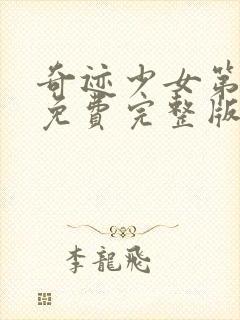 奇迹少女第
免費完整版
李龍飛